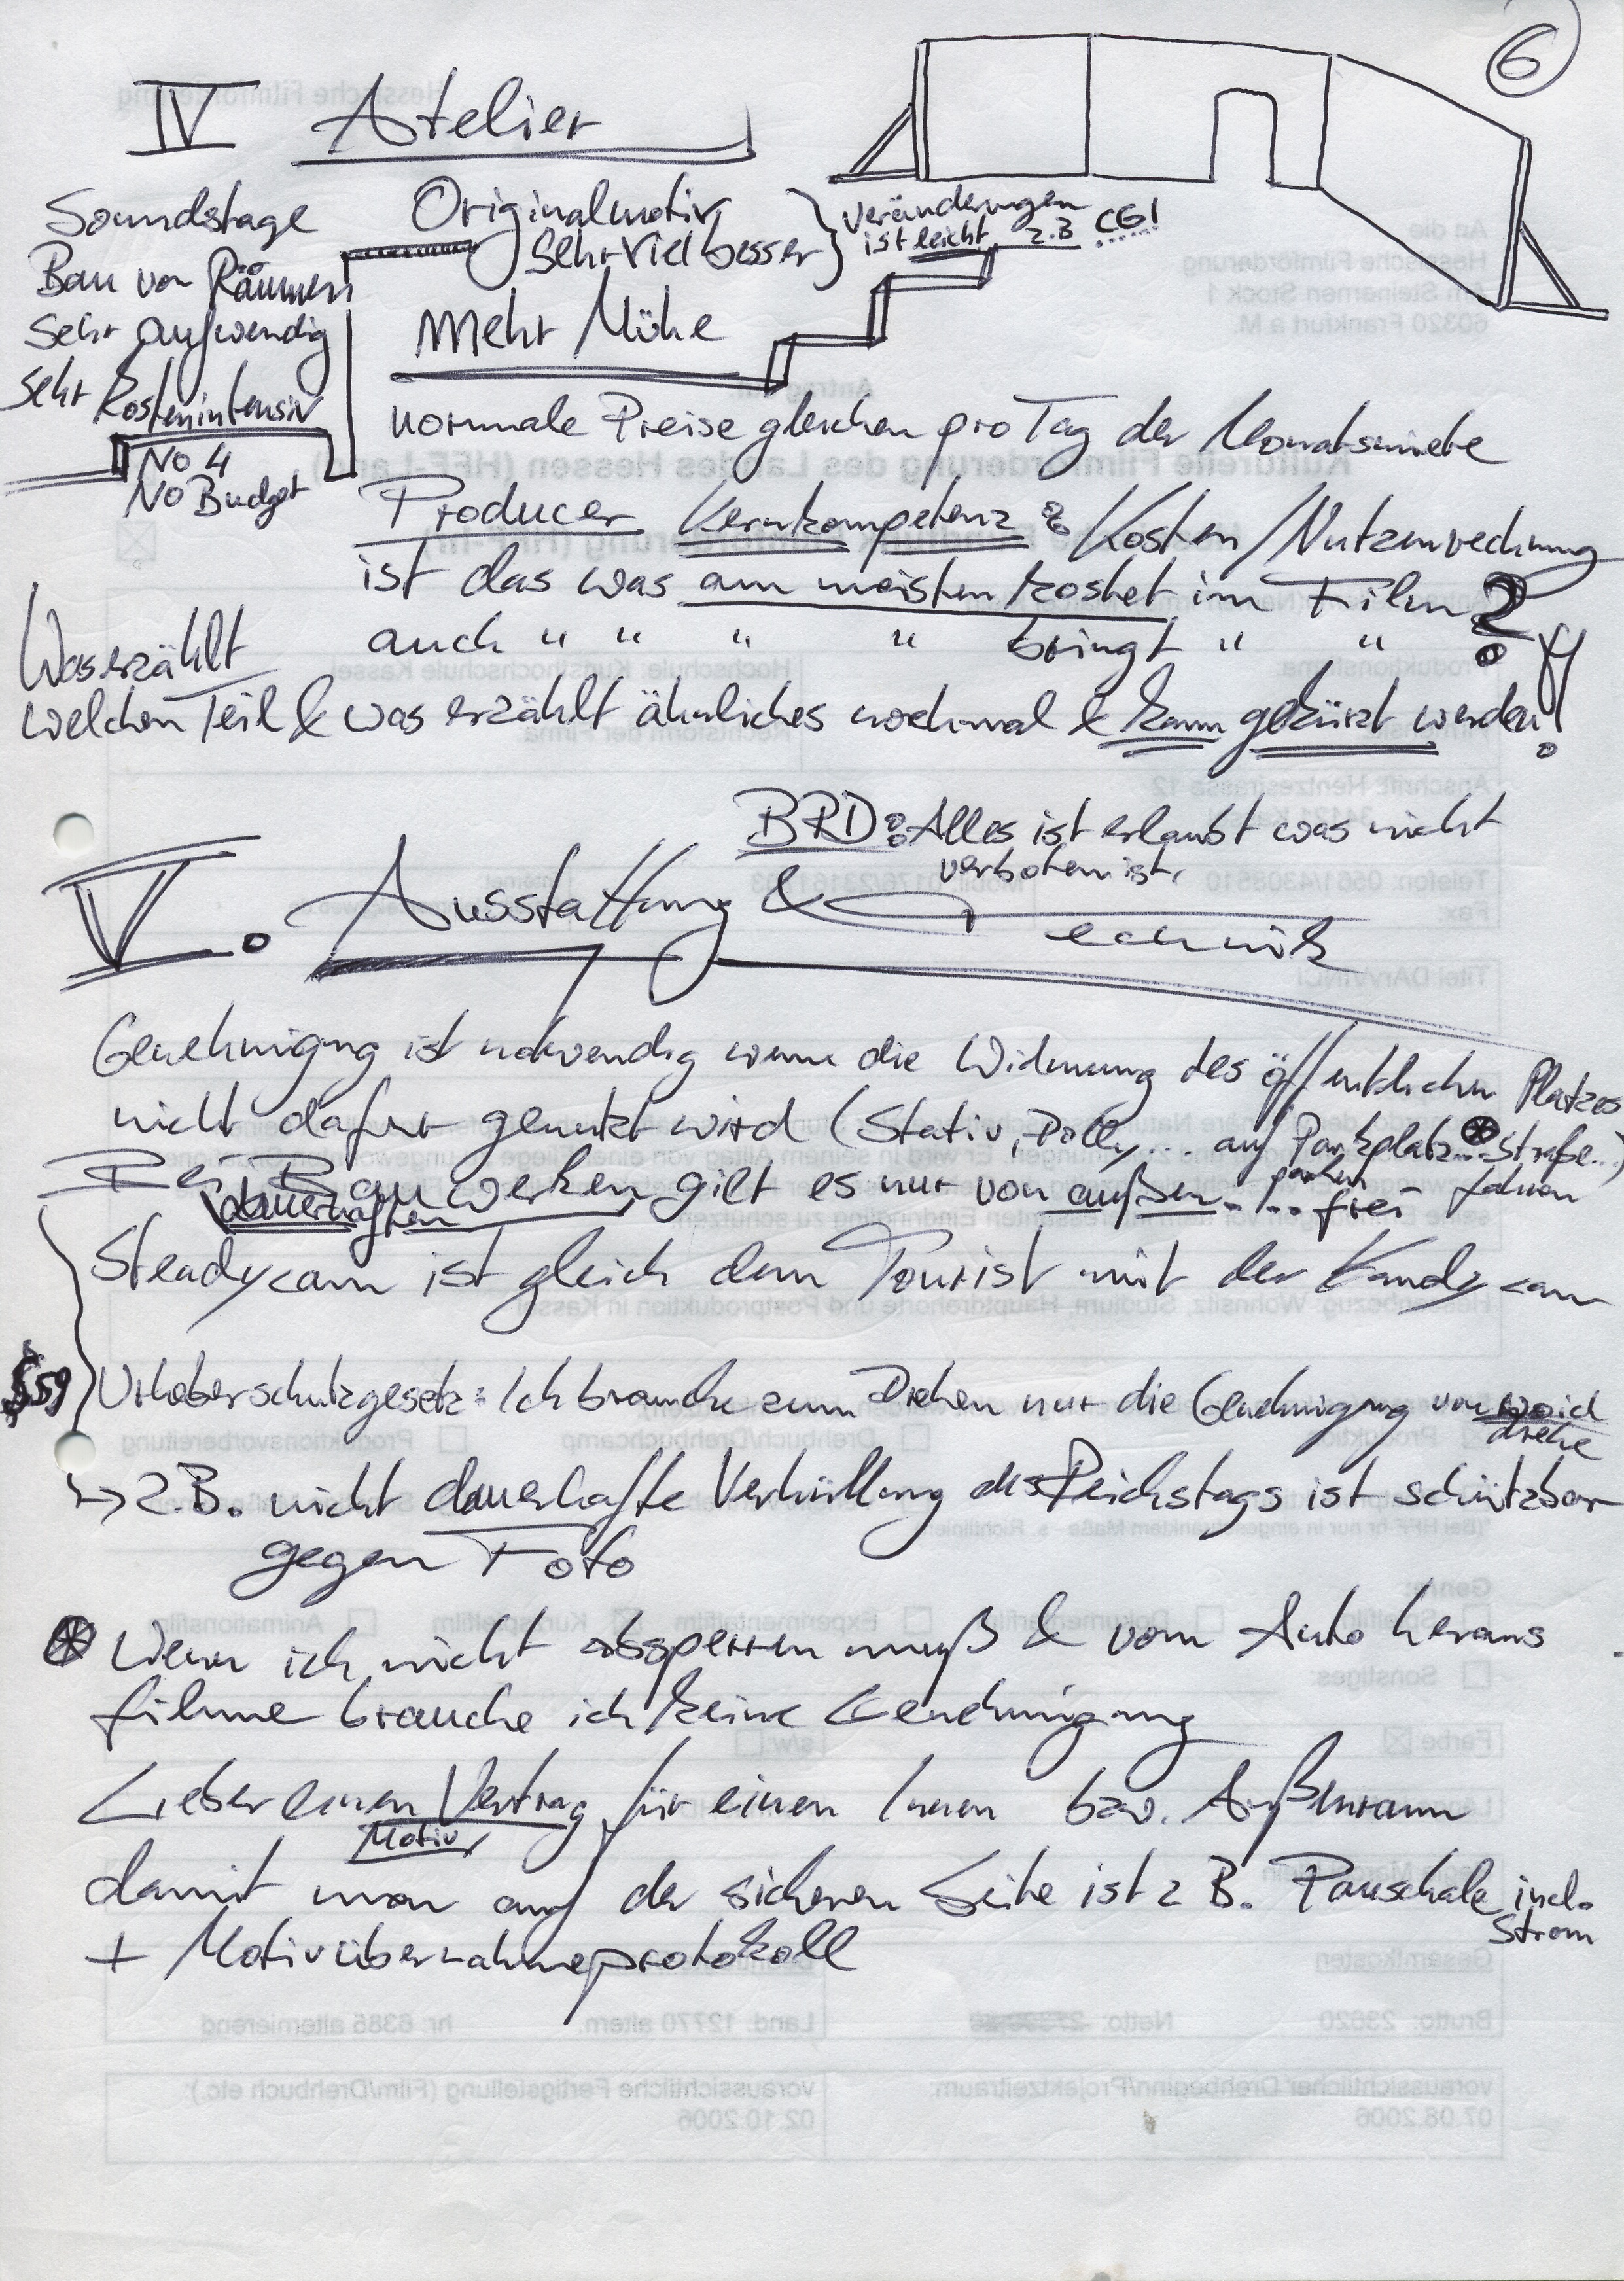 6
IV Atelier
Soundstage
Bau von Räumen
sehr aufwendig
sehr kostenintensiv
No 4
No Budget
Originalmotiv
sehr viel besser
Veränderungen
ist leicht z.B CGI
Mehr Mühe
normale Preise gleichen pro Tag der Monatsmiete
Producer Kernkompetenz: Kosten/Nutzenrechnung
ist das was am meisten kostet im Film?
auch " " " " bringt " "
Was erzählt
welchen Teil & was erzählt ähnliches nochmal & kann gekürzt werden!
BRD: Alles ist erlaubt was nicht
verboten ist.
V. Ausstattung & Technik
Genehmigung ist notwendig wenn die Widmung des öffentlichen Platzes
nicht dafür genutzt wird (Stativ, Dolly... auf Parkplatz... Straße...)
parken fahren
Bei Bauwerken gilt es nur von außen... frei
dauerhaften
Steadycam ist gleich dem Tourist mit der Handycam
§59 Urheberschutzgesetz: Ich brauche zum Drehen nur die Genehmigung von wo ich
drehe
→ z.B. nicht dauerhafte Verhüllung des Reichstags ist schützbar
gegen Foto
Wenn ich nicht absperren muß & vom Auto heraus
filme brauche ich keine Genehmigung
Lieber einen Vertrag für einen Innen bzw. Außenraum
Motiv
damit man auf der sicheren Seite ist z B. Pauschale incl.
Strom
+ Motivübernahmeprotokoll